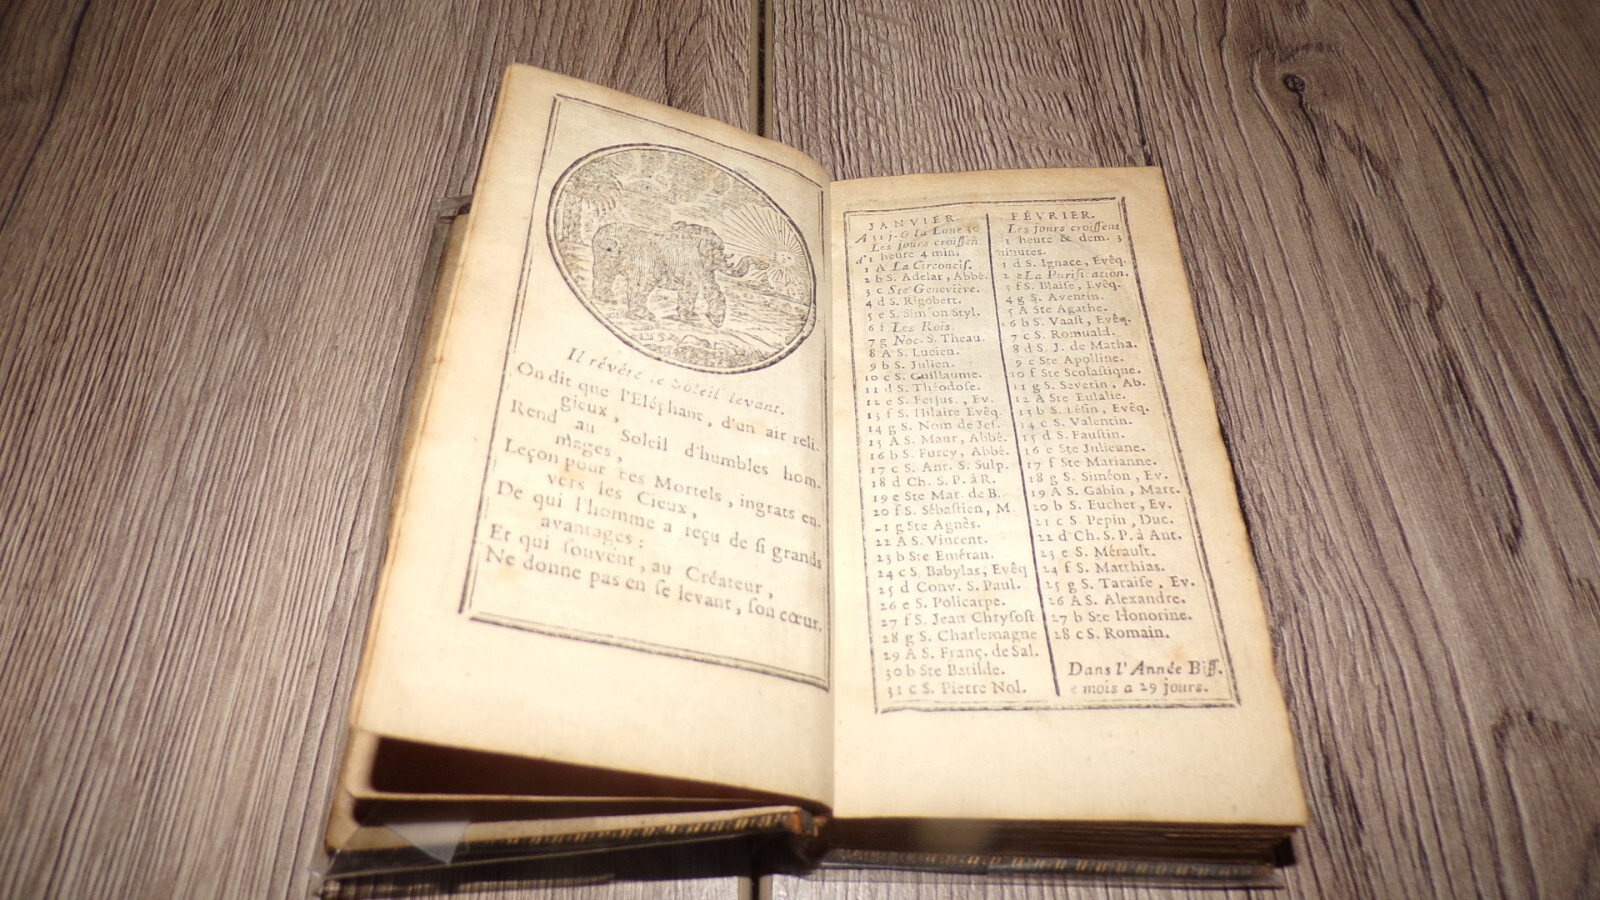 Il révére le Soleil levant.
On dit que l'Eléphant, d'un air reli-
gieux,
Rend au Soleil d'humbles hom-
mages,
Leçon pour ces Mortels, ingrats en-
vers les Cieux,
De qui l'homme a reçu de ſi grands
avantages :
Et qui ſouvent, au Créateur,
Ne donne pas en ſe levant, ſon cœur.
JANVIER.
A 31 j. & la Lune 30
Les jours croiſſen
d'1 heure 4 min.
1 A La Circonciſ.
2 b S. Adelar, Abbé.
3 c Ste Geneviève.
4 d S. Rigobert.
5 e S. Simon Styl.
6 f Les Rois.
7 g Noc. S. Theau.
8 A S. Lucien.
9 b S. Julien.
10 c S. Guillaume.
11 d S. Théodoſe.
12 e S. Ferjus., Ev.
13 f S. Hilaire Evêq.
14 g S. Nom de Jeſ.
15 A S. Maur, Abbé.
16 b S. Furcy, Abbé.
17 c S. Ant. S. Sulp.
18 d Ch. S. P. à R.
19 e Ste Mar. de B.
20 f S. Sébaſtien, M.
21 g Ste Agnès.
22 A S. Vincent.
23 b Ste Eméran.
24 c S. Babylas, Evêq
25 d Conv. S. Paul.
26 e S. Policarpe.
27 f S. Jean Chryſoſt.
28 g S. Charlemagne
29 A S. Franç. de Sal.
30 b Ste Batilde.
31 c S. Pierre Nol.
FÉVRIER.
Les jours croiſſent
1 heure & dem. 3
minutes.
1 d S. Ignace, Évêq.
2 e La Purification.
3 f S. Blaiſe, Evêq.
4 g S. Aventin.
5 A Ste Agathe.
6 b S. Vaaſt, Evêq.
7 c S. Romuald.
8 d S. J. de Matha.
9 e Ste Apolline.
10 f Ste Scolaſtique.
11 g S. Severin, Ab.
12 A Ste Eulalie.
13 b S. Léſin, Evêq.
14 c S. Valentin.
15 d S. Fauſtin.
16 e Ste Julienne.
17 f Ste Marianne.
18 g S. Siméon, Ev.
19 A S. Gabin, Mart.
20 b S. Eucher, Ev.
21 c S. Pepin, Duc.
22 d Ch. S. P. à Ant.
23 e S. Mérault.
24 f S. Matthias.
25 g S. Taraiſe, Ev.
26 A S. Alexandre.
27 b Ste Honorine.
28 c S. Romain.
Dans l'Année Biſſ.
e mois a 29 jours.